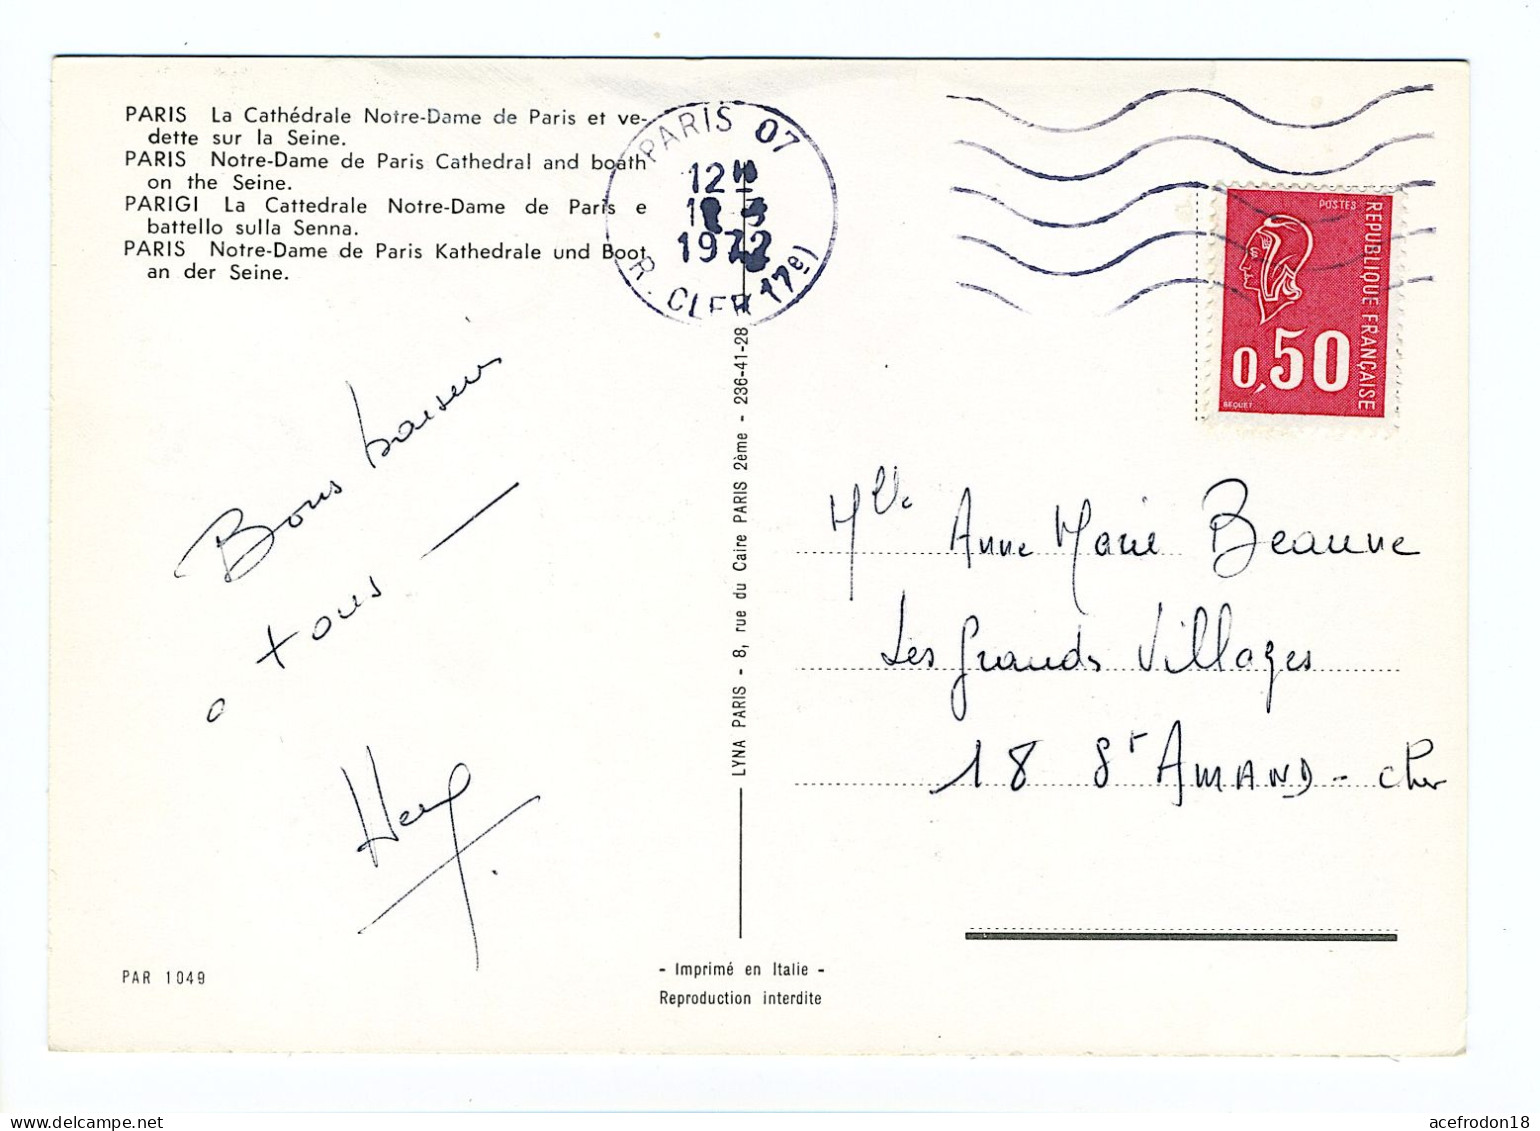 PARIS La Cathédrale Notre-Dame de Paris et ve-
dette sur la Seine.
PARIS Notre-Dame de Paris Cathedral and boath
on the Seine.
PARIGI La Cattedrale Notre-Dame de Paris e
battello sulla Senna.
PARIS Notre-Dame de Paris Kathedrale und Boot
an der Seine.
PARIS 07
12H
1972
R. CLER (7e)
POSTES
REPUBLIQUE FRANÇAISE
0,50
BEQUET
Bons baisers
a tous
PAR 1049
LYNA PARIS - 8, rue du Caire PARIS 2ème - 236-41-28
- Imprimé en Italie -
Reproduction interdite
Mlle Anne Marie Beaune
Les Grands Villages
18 St AMAND - Cher
delcampe.net
acefrodon18